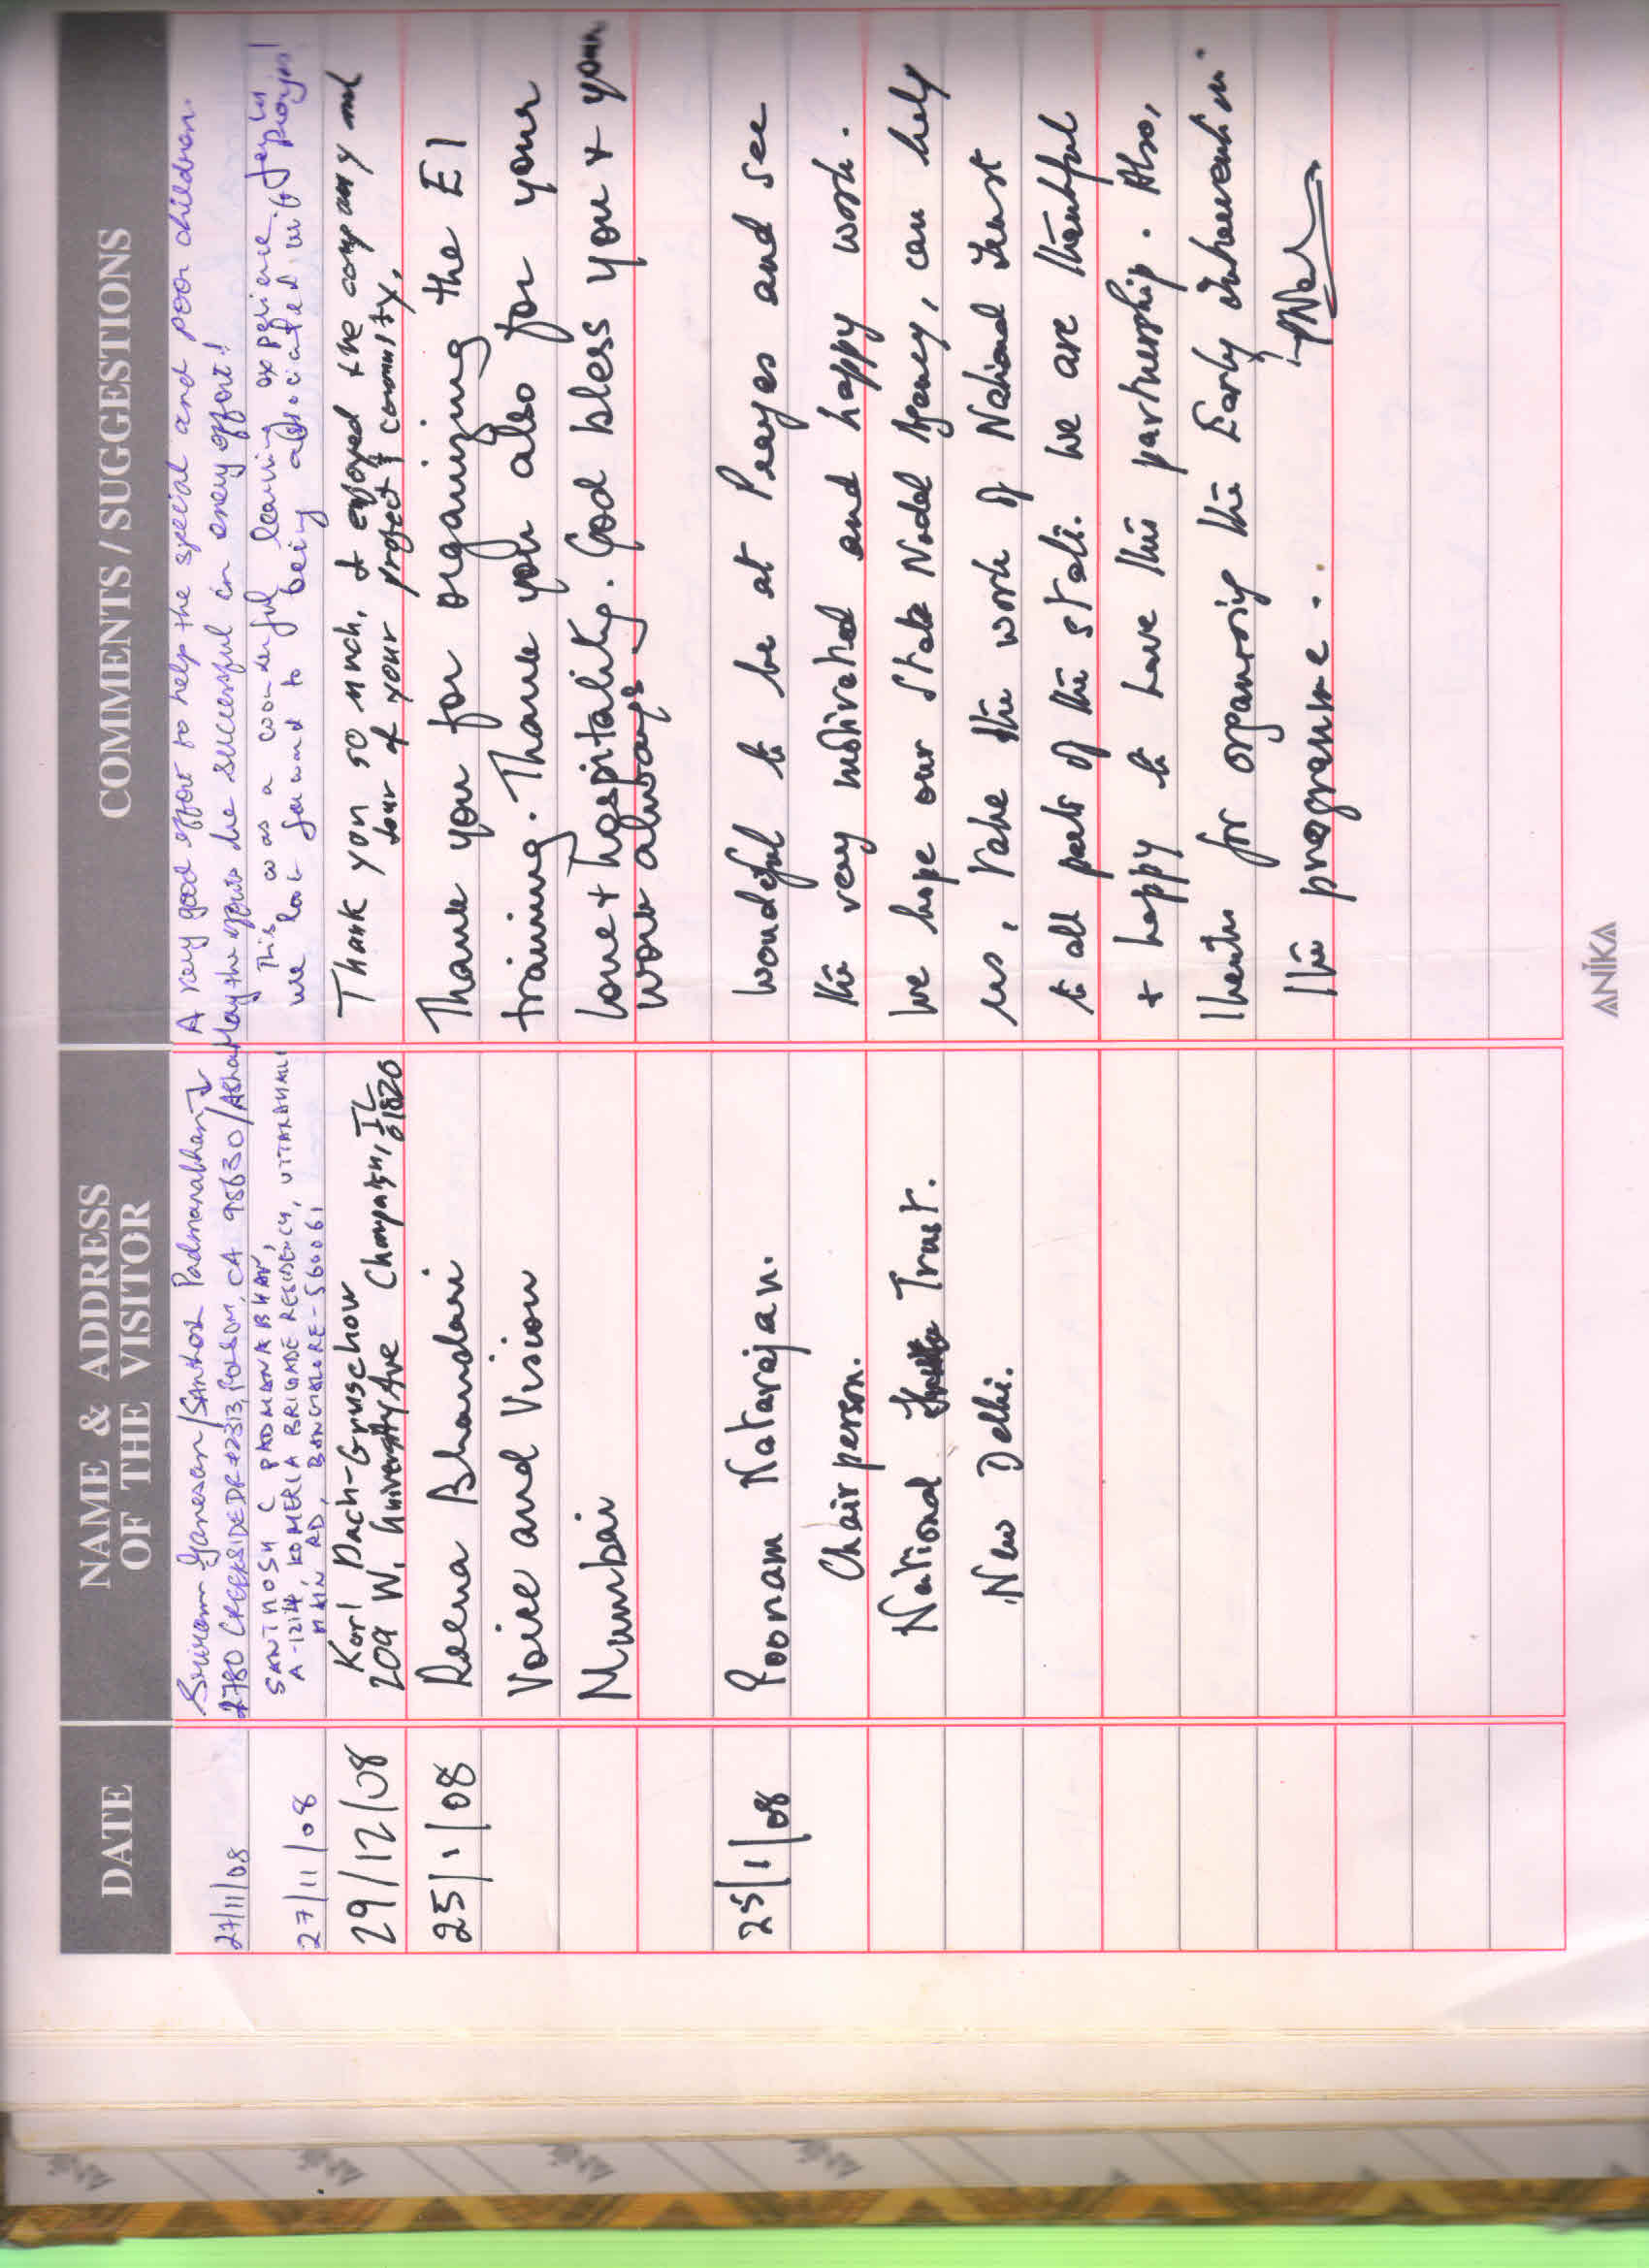 DATE
NAME & ADDRESS
OF THE VISITOR
COMMENTS / SUGGESTIONS
27/11/08
Sriram Ganesan / Santhosh Padmanabhan
2780 CREEKSIDE DR #2313, FOLSOM, CA 95630 / Asha
A very good effort to help the special and poor children.
May the efforts be successful in every effort!
27/11/08
SANTHOSH C PADMANABHAN,
A-1214, KOMERLA BRIGADE RESIDENCY, UTTARAHALLI
MAIN RD, BANGALORE - 560061
This was a wonderful learning experience.
we look forward to being associated w/
29/12/08
Karl Pach-Gruschow
209 W. University Ave Champaign, IL
61820
Thank you so much. I enjoyed the company and
tour of your project & community.
25/1/08
Reena Bhandari
Voice and Vision
Mumbai
Thank you for organizing the EI
training. Thank you also for your
love + hospitality. God bless you + your
work always
25/1/08
Poonam Natarajan.
Chairperson.
National Trust.
New Delhi.
Wonderful to be at Prayas and see
the very motivated and happy work.
We hope our State Nodal Agency, can help
us, take the work of National Trust
to all parts of the state. We are thankful
+ happy to have this partnership. Also,
thanks for organising the Early Intervention
the programme.
ANIKA